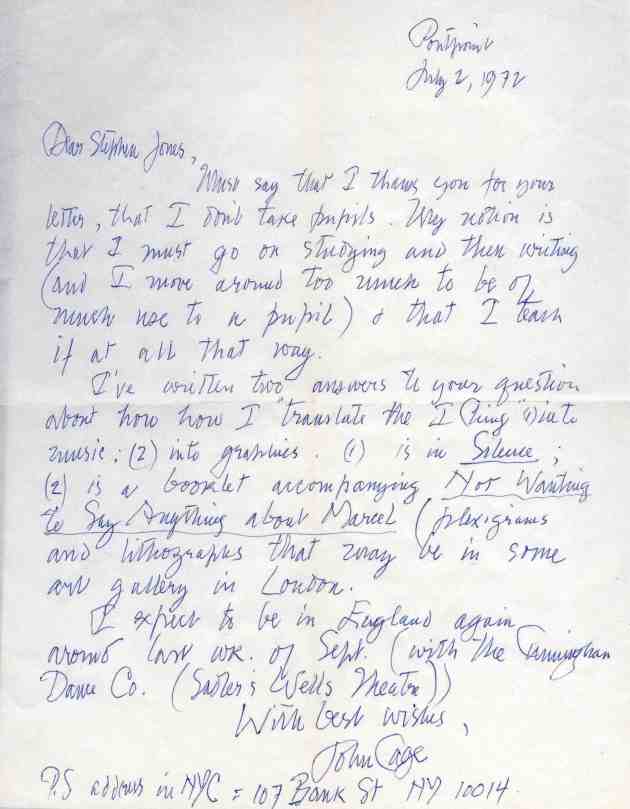 Pontpoint
July 2, 1972
Dear Stephen Jones,
Must say that I thank you for your
letter, that I don't take pupils. My notion is
that I must go on studying and then writing
(and I move around too much to be of
much use to a pupil) & that I teach
if at all that way.
I've written two answers to your question
about how how I "translate the I Ching" (1) into
music; (2) into graphics. (1) is in Silence;
(2) is a booklet accompanying Not Wanting
to Say Anything about Marcel (plexigrams
and lithographs that may be in some
art gallery in London.
I expect to be in England again
around last wk. of Sept. (with the Cunningham
Dance Co. (Sadler's Wells Theatre))
With best wishes,
John Cage
P.S address in NYC = 107 Bank St NY 10014.